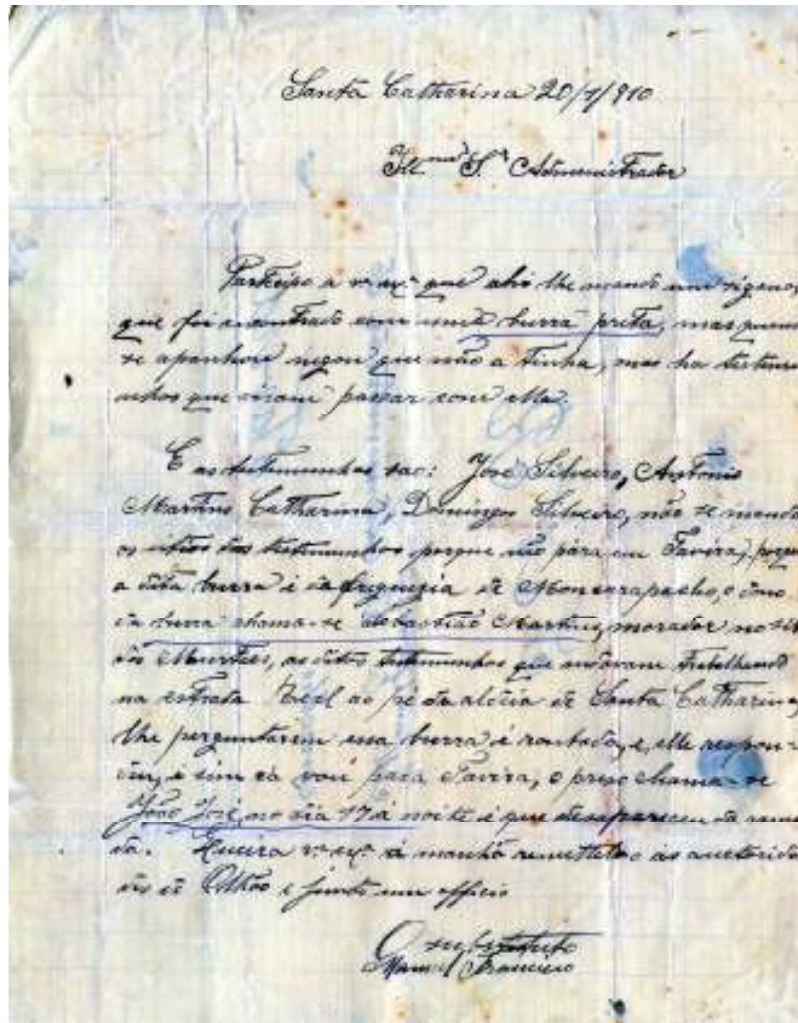 Santa Catharina 20/1/910
Ill.mo Sr. Administrador
Partecipo a v.ª ex.ª que ahi lhe mando um sigano,
que foi incontrado com uma burra preta, mas
se apanhou negou que não a tinha, mas ha
que viram passar com ella.
E as testemunhas são: José Silveiro, Antonio
Martins Catharina, Domingos Silveiro, não se
os das testemunhas porque não pára em Tavira,
a dita burra é da freguezia de Moncarapacho, o dono
da burra chama-se Sebastião Martins, morador no
dos Murtais, as ditas testemunhas que andavam
na estrada Real ao pé da aldeia de Santa Catharina
lhe perguntaram essa burra é roubada, e, elle
é sim cá vou para Tavira, o preso chama-se
João José, no dia 17 á noite é que desapareceu da
da. Queira v.ª ex.ª á manhã ás
de Olhão e junto um officio
O substituto
Manuel Francisco